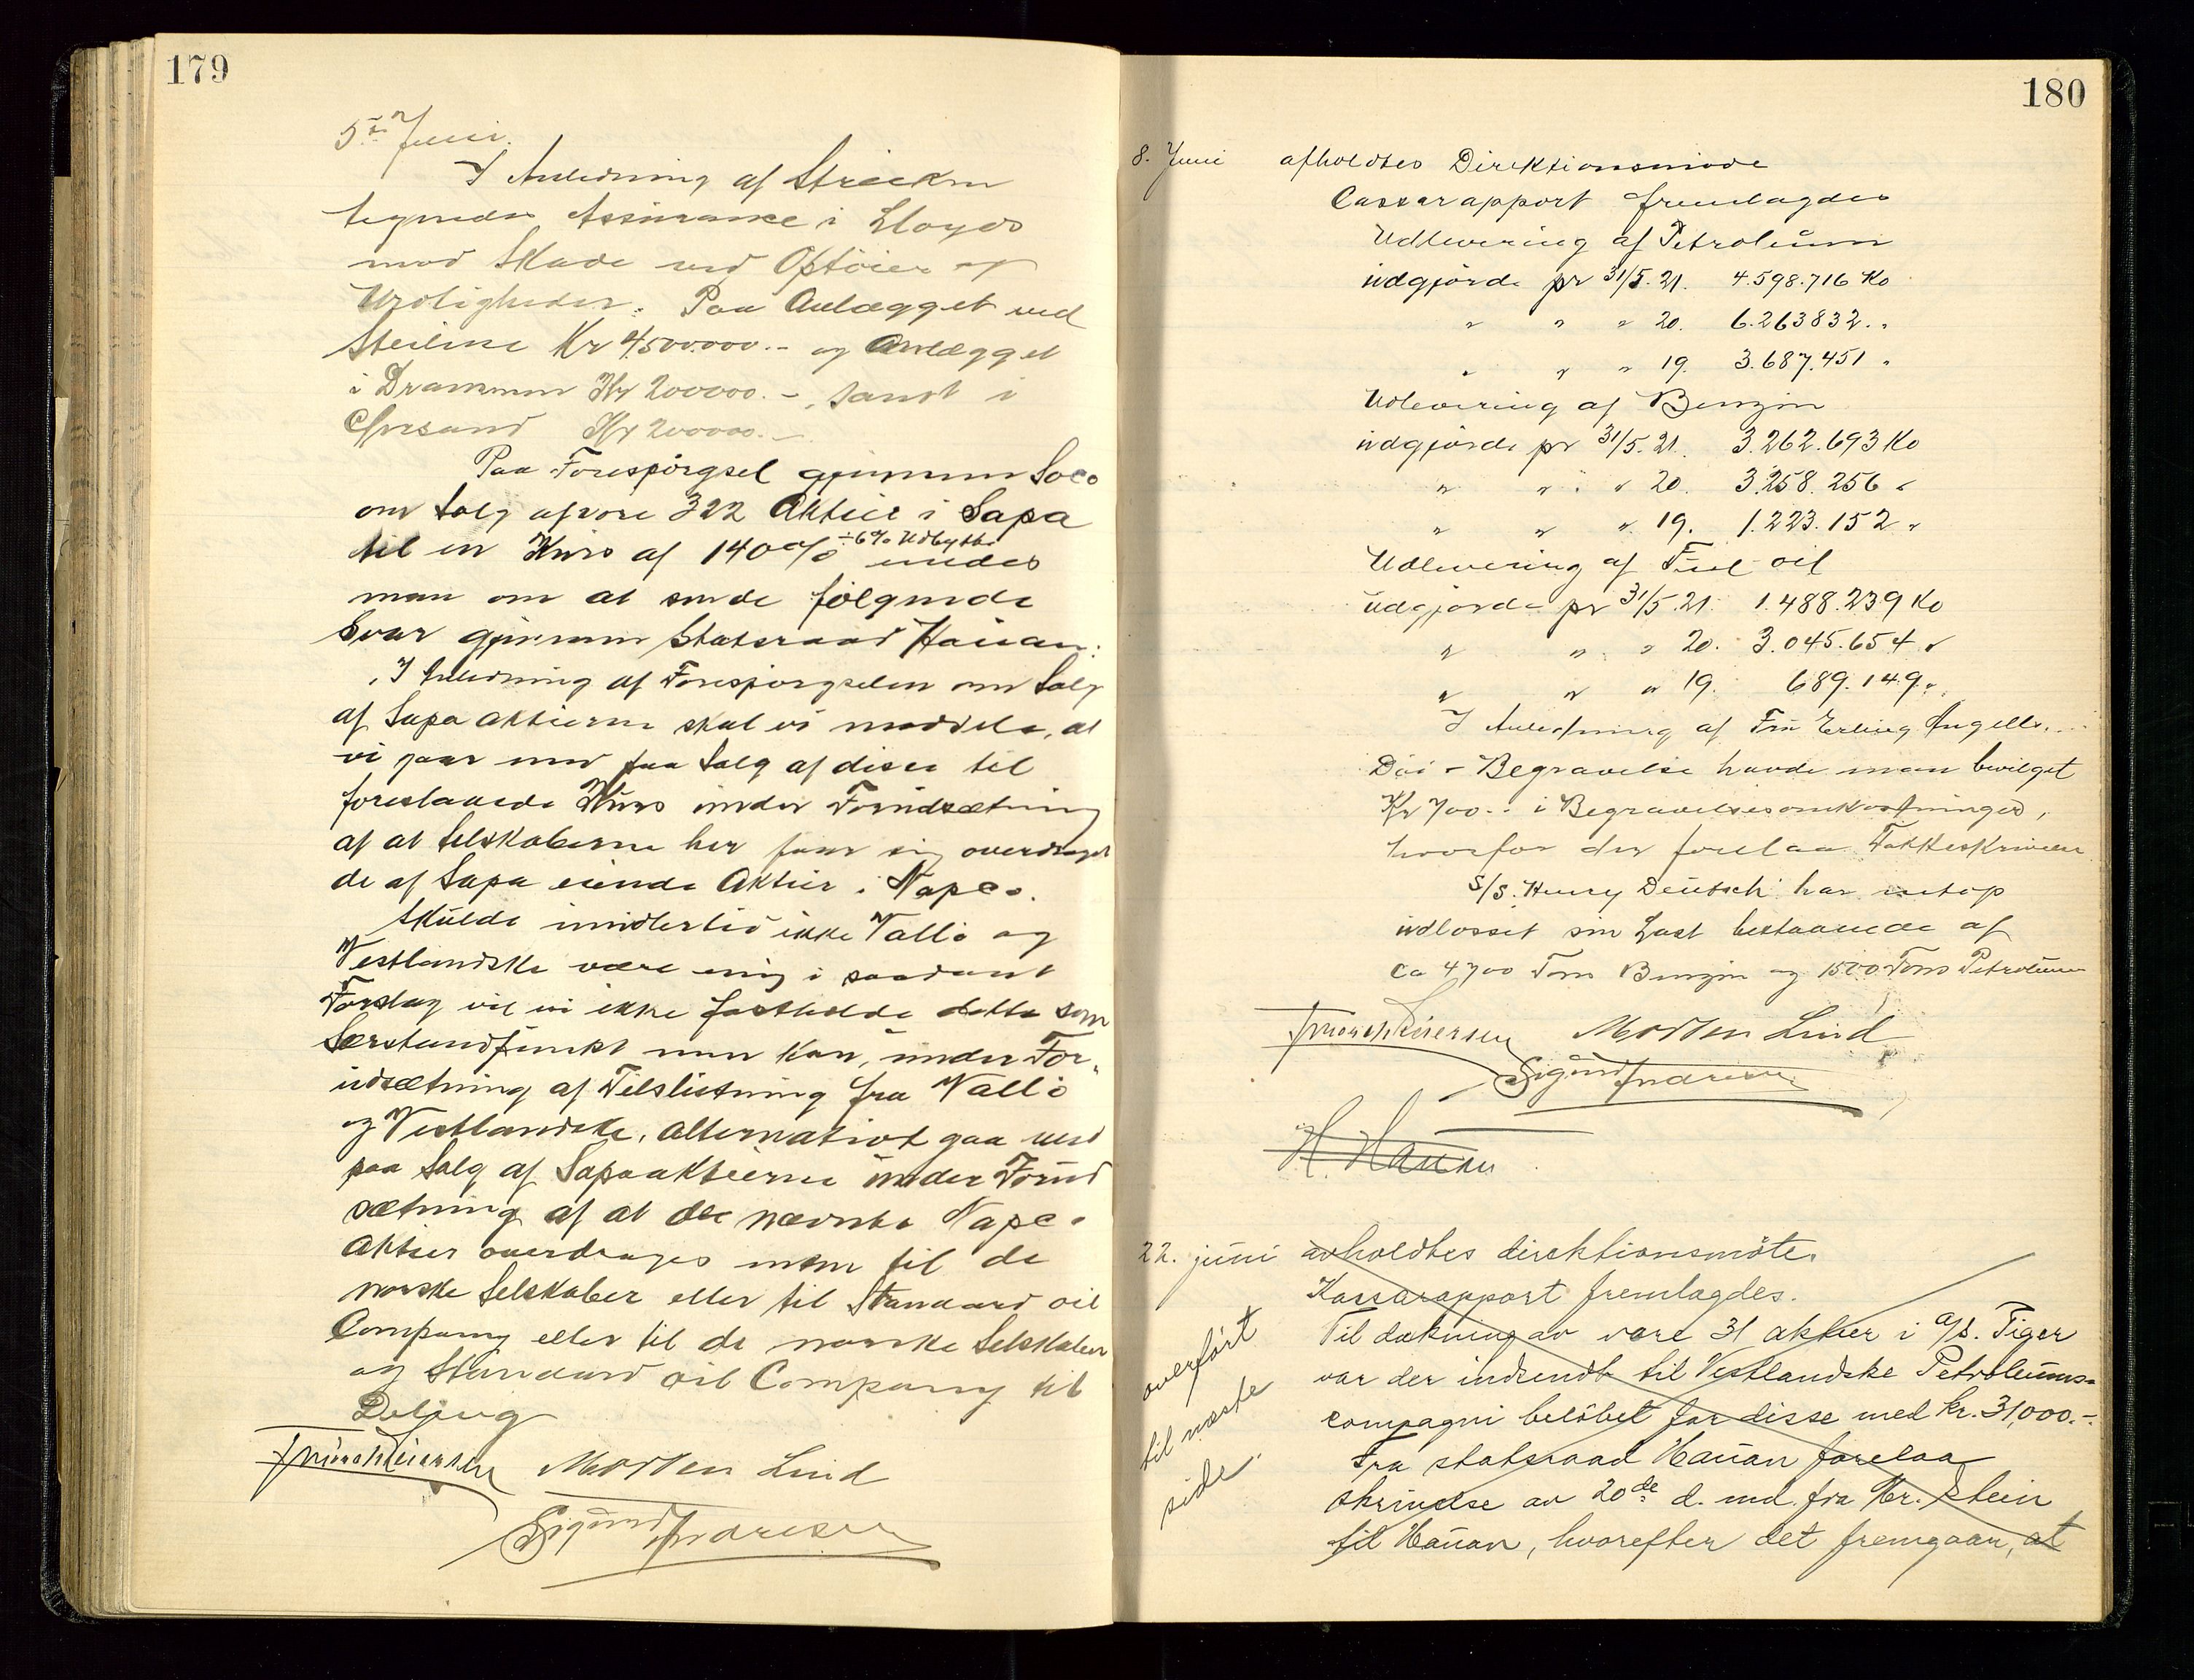 179
5te Juni.
I Anledning af Streiken
tegnedes Assurance i Lloyds
mod Skade ved Optöier og
Uroligheder. Paa Anlægget ved
Steilene Kr 4500.000.- og Anlægget
i Drammen Kr 200000.-, samt i
Chrsand Kr 200000.-
Paa Forespörgsel gjennem Soco
om Salg af vore 322 Aktier i Sapa
til en Kurs af 140% ÷6% Udbytte enedes
man om at sende fölgende
Svar gjennem Statsraad Hauan:
"I Anledning af Forespörgselen om Salg
af Sapa aktierne skal vi meddele, at
vi gaar med paa Salg af disse til
foreslaaede Kurs under Forudsætning
af at Selskaberne her faar sig overdraget
de af Sapa eiende Aktier i Napco.
Skulde imidlertid ikke Vallö og
Vestlandske være enig i saadant
Forslag vil vi ikke fastholde dette som
Særstandpunkt men kan, under For-
udsætning af Tilslutning fra Vallö
og Vestlandske, alternativt gaa med
paa Salg af Sapaaktierne under Forud
sætning af at de nævnte Napco
Aktier overdrages enten til de
norske Selskaber eller til Standard oil
Company eller til de norske Selskaber
og Standard oil Company til
Deling
Morten Lind
Sigurd
180
8. Juni afholdtes Direktionsmöde
Cassarapport fremlagdes
Udlevering af Petroleum
udgjorde pr 31/5.21. 4.598.716 Ko
" " " 20. 6.263832. "
" " " 19. 3.687.451 "
Udlevering af Benzin
udgjorde pr 31/5.21. 3.262.693 Ko
" " " 20. 3.258.256 "
" " " 19. 1.223.152 "
Udlevering af Fuel oil
udgjorde pr 31/5.21. 1.488.239 Ko
" " " 20. 3.045.654 "
" " " 19. 689.149 "
I Anledning af Fru Erling Angells
Död - Begravelse havde man bevilget
Kr 700.- i Begravelsesomkostninger,
hvorfor der forelaa Takkeskrivelse
S/S. Henry Deutsch har netop
udlosset sin Last bestaaende af
ca 4700 Tons Benzin og 1500 Tons Petroleum
Morten Lind
Sigurd
H. Hauan
22. juni avholdtes direktionsmöte.
Kassarapport fremlagdes.
Til dækning av vore 31 aktier i A/S. Tiger
var der indsendt til Vestlandske Petroleums-
compagni belöbet for disse med kr. 31,000.-.
Fra statsraad Hauan forelaa
skrivelse av 20de d. md. fra Hr. Stein
til Hauan, hvorefter det fremgaar, at
overfört
til næste
side.